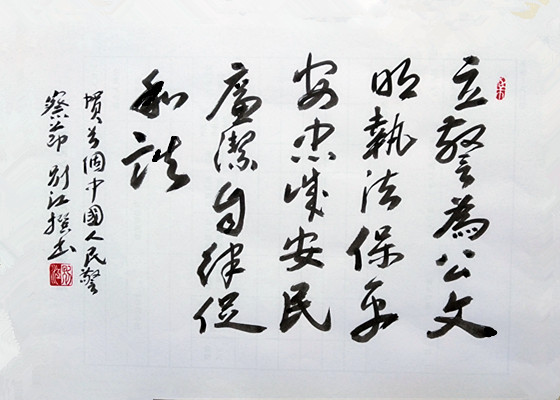 立警為公文
明執法保平
安忠誠安民
廉潔自律促
和諧
首個中國人民警
察節 刘江撰书